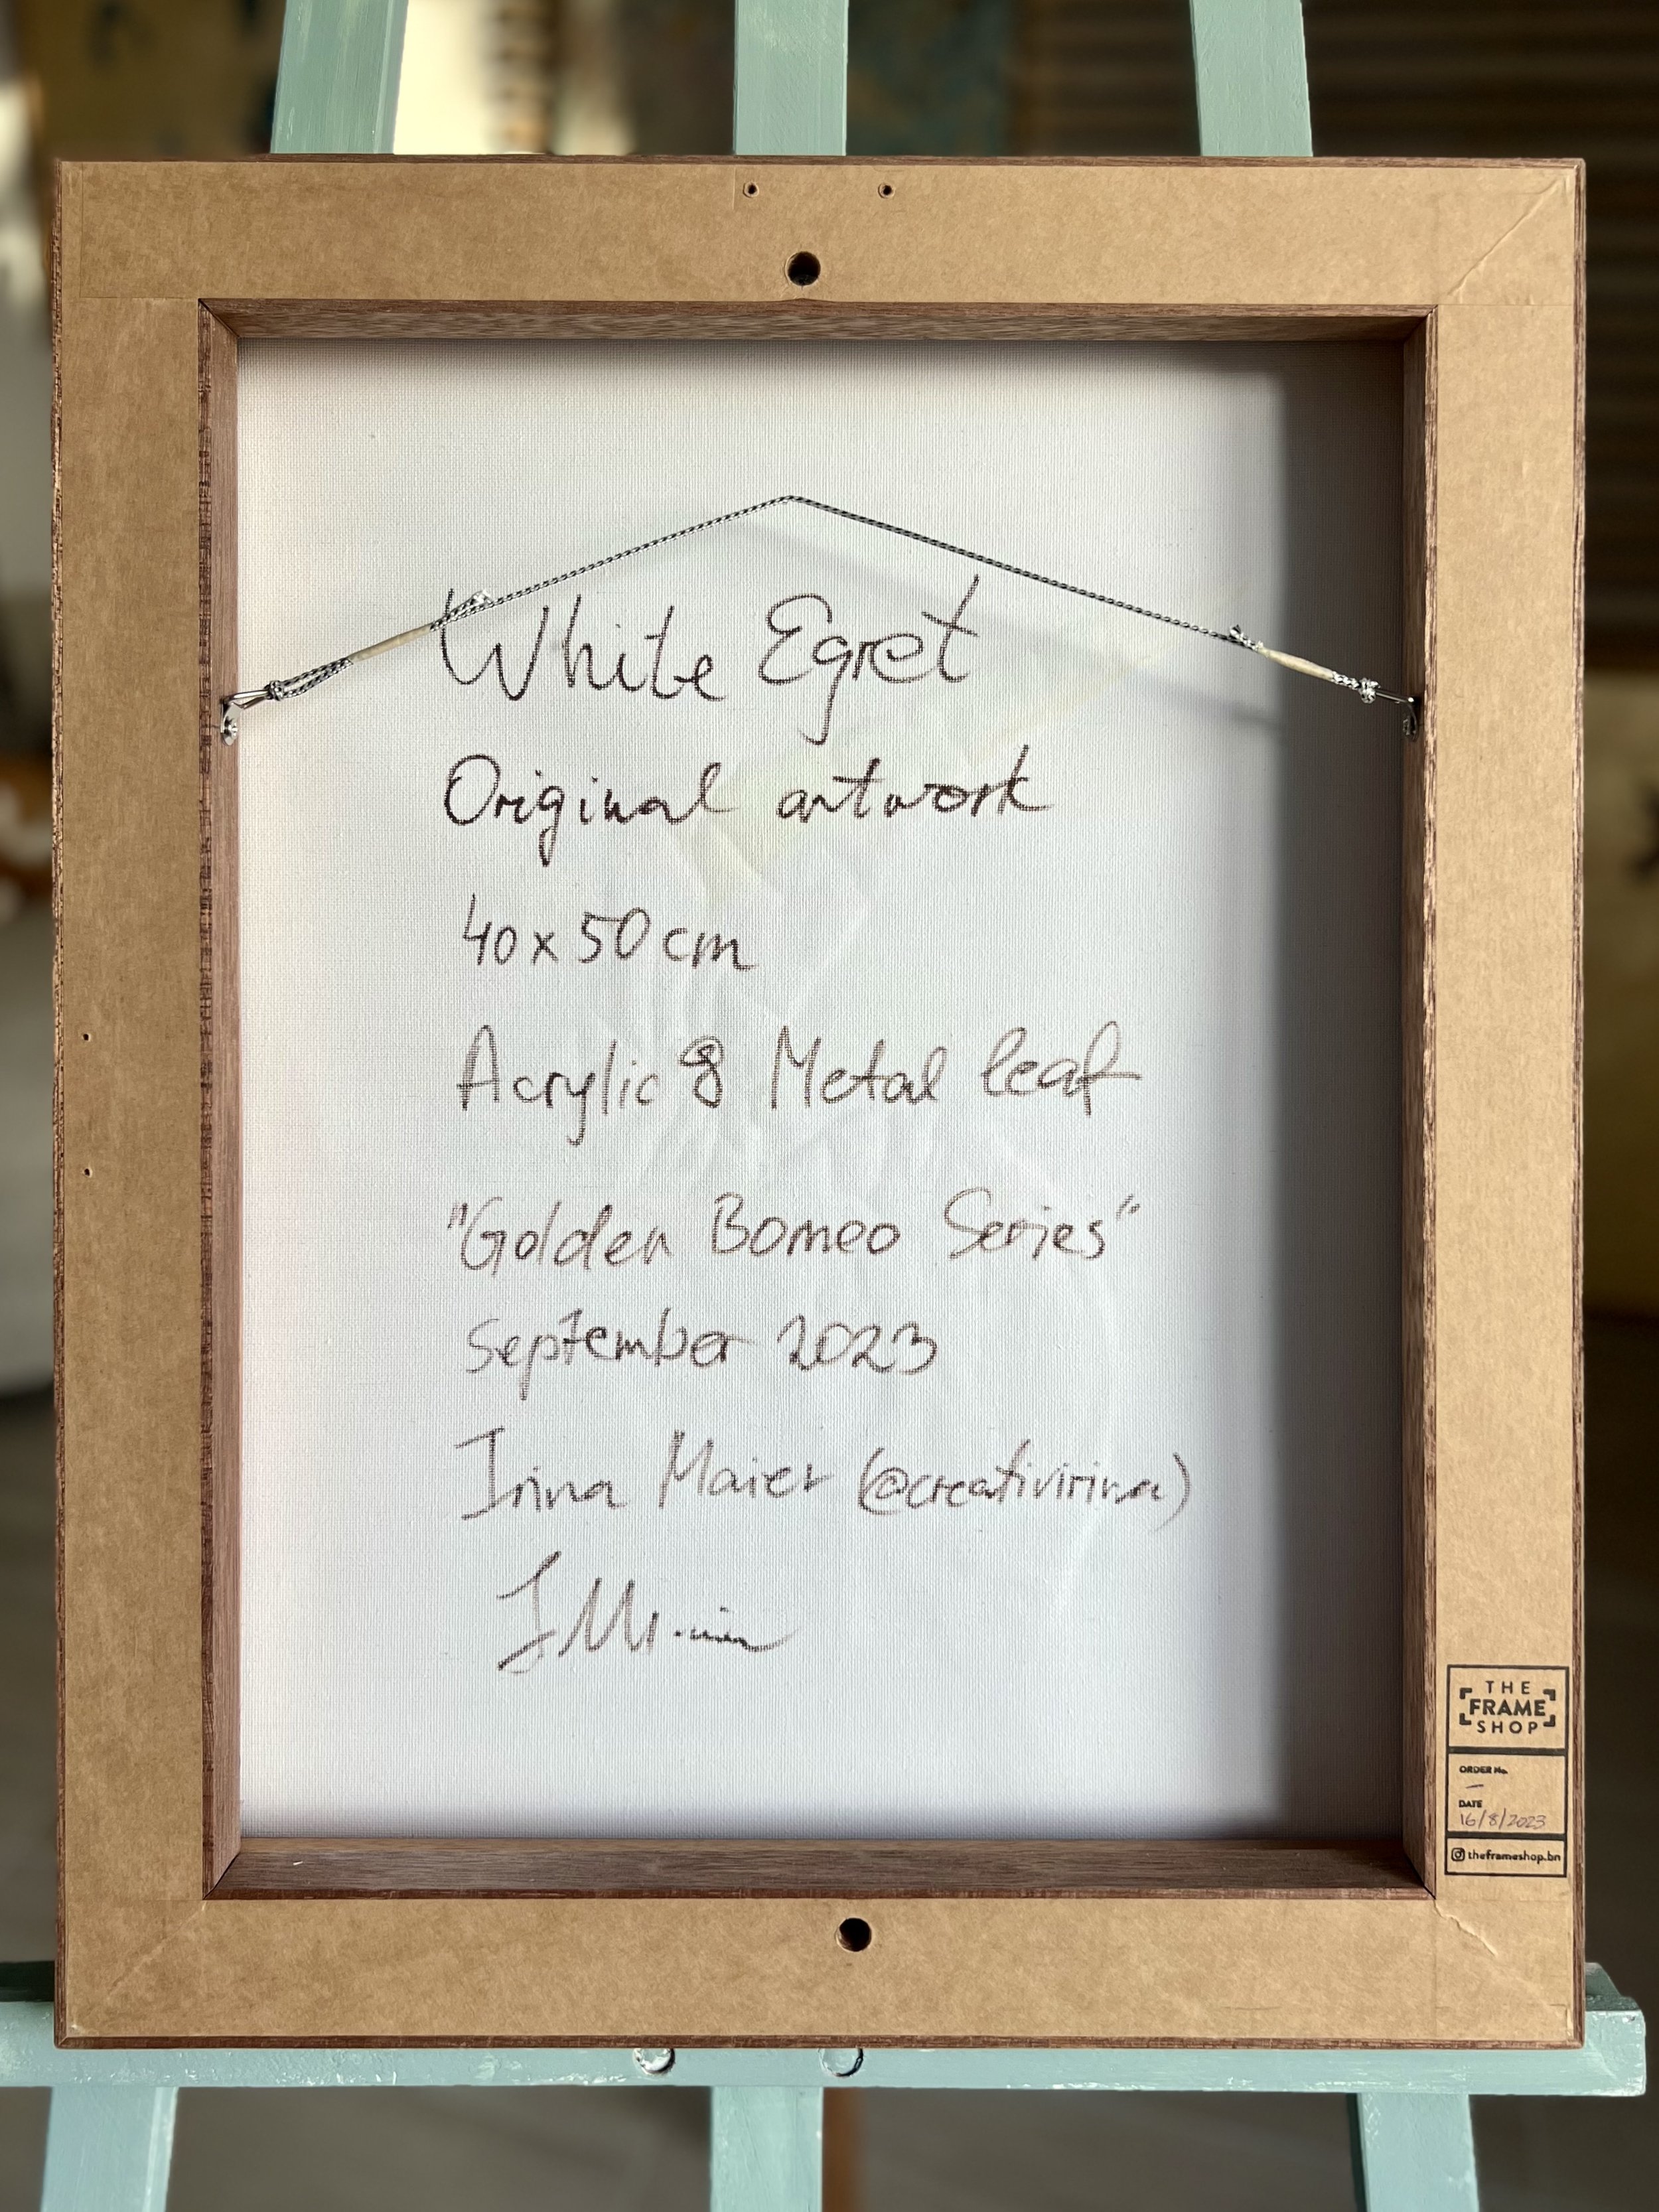 White Egret
Original artwork
40 x 50 cm
Acrylic & Metal leaf
"Golden Borneo Series"
September 2023
Irina Maier (@creativirina)
THE
FRAME
SHOP
ORDER No.
—
DATE
16/8/2023
theframeshop.bn